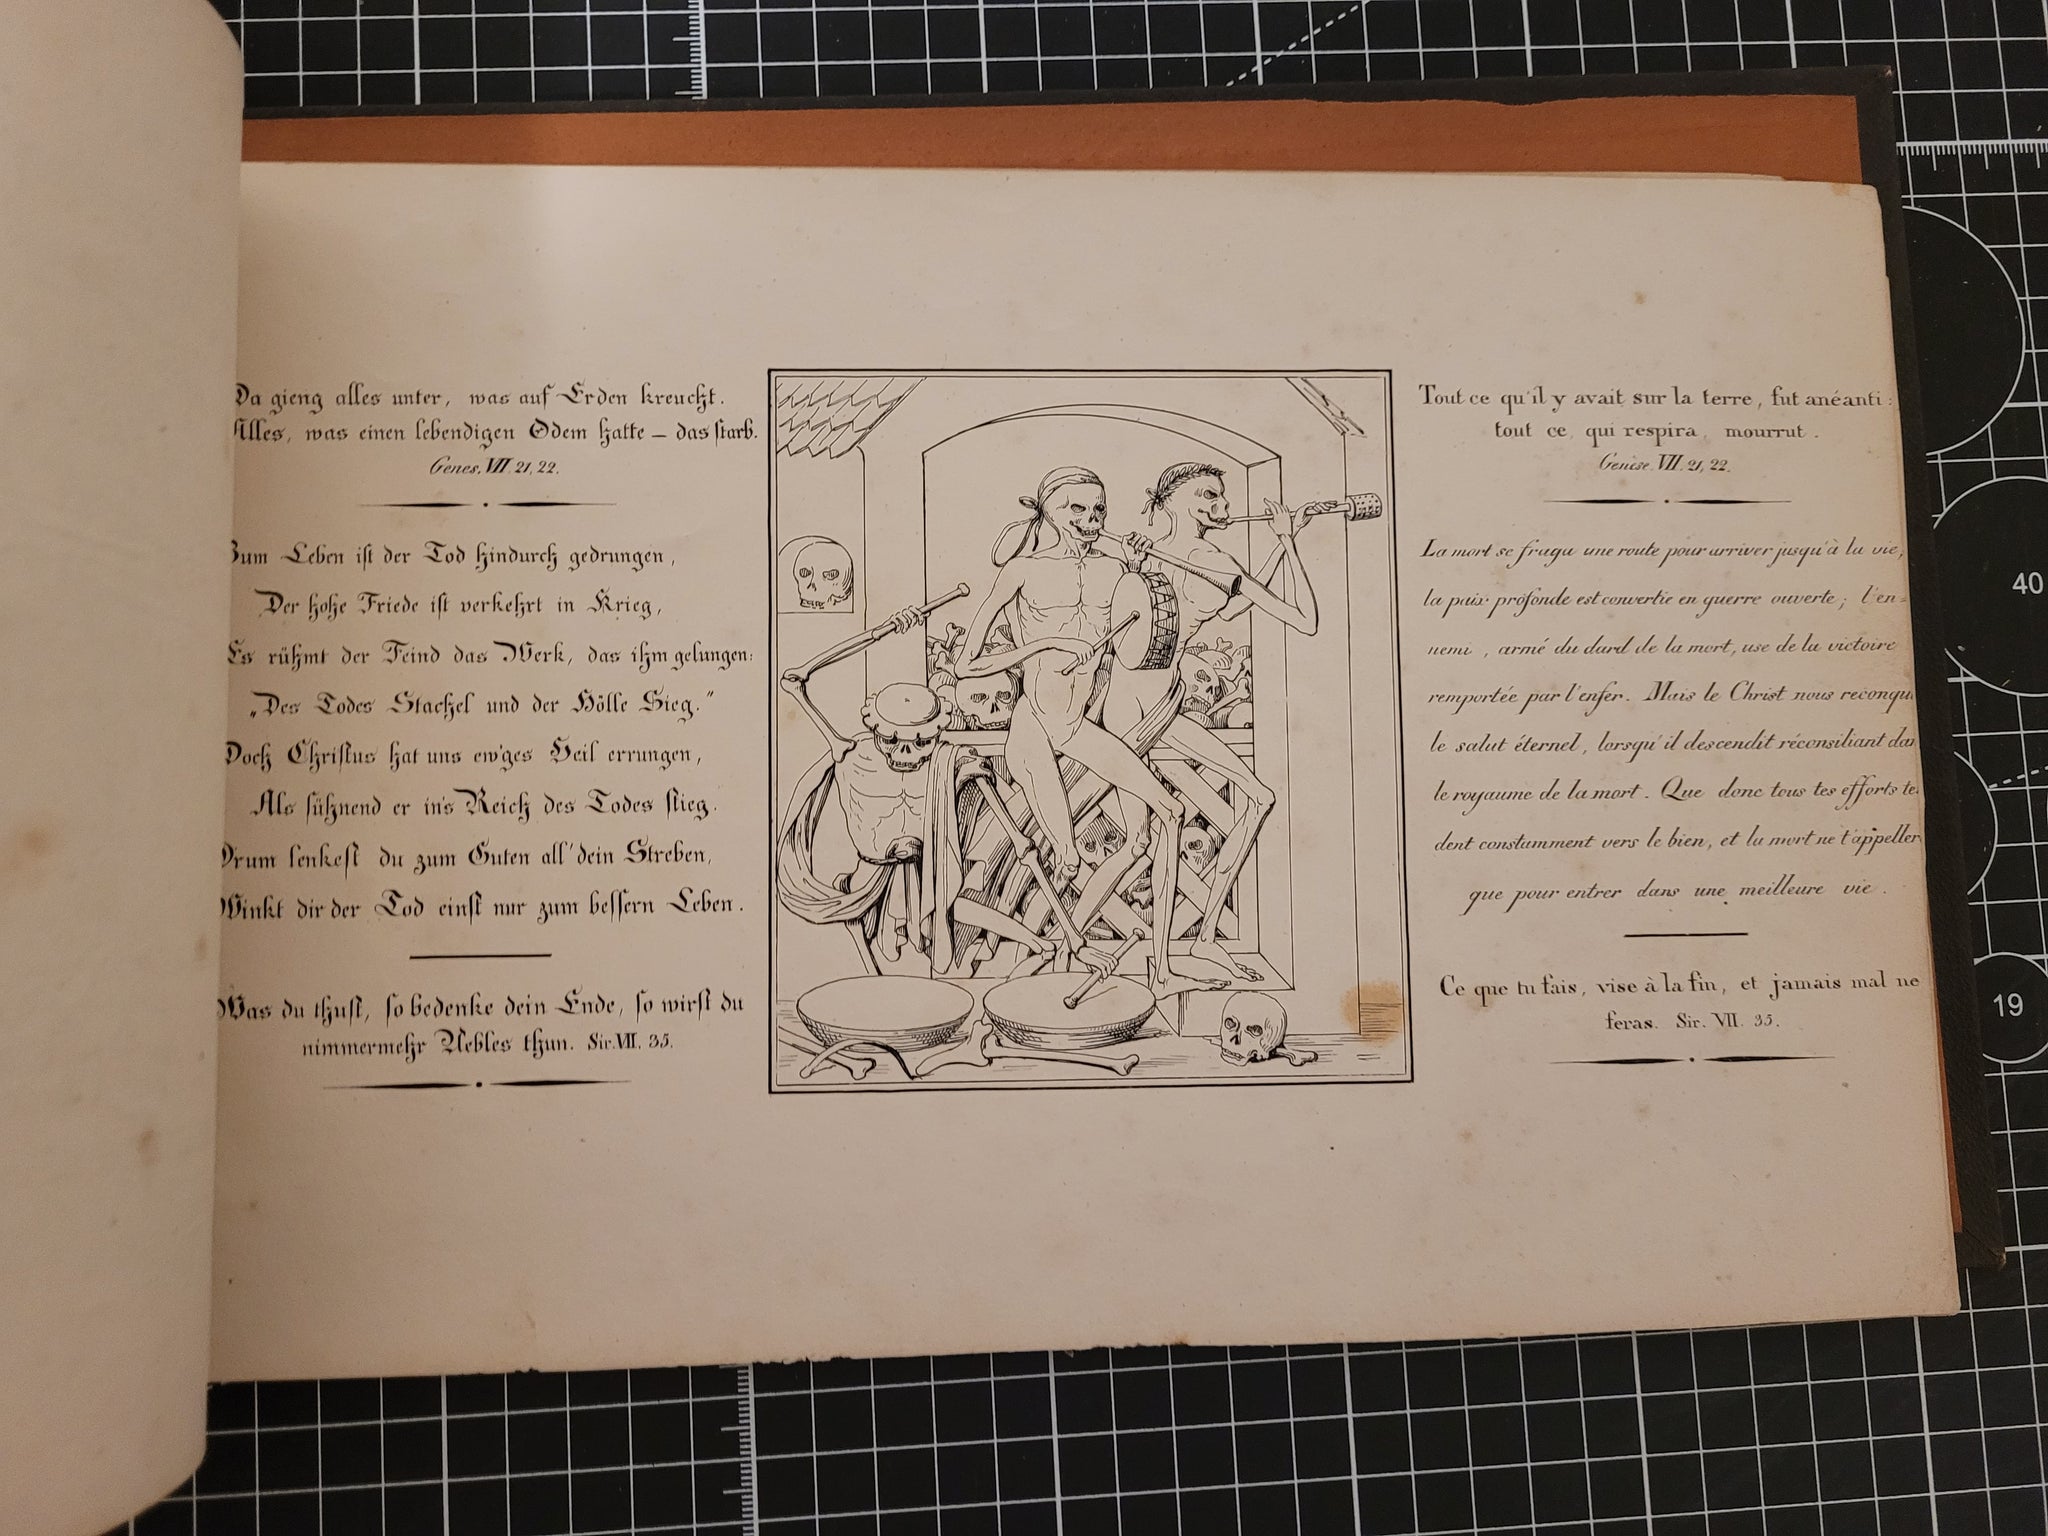 Da gieng alles unter, was auf Erden kreucht.
Alles, was einen lebendigen Odem hatte – das starb.
Genes. VII. 21, 22.
Zum Leben ist der Tod hindurch gedrungen,
Der hohe Friede ist verkehrt in Krieg,
Es rühmt der Feind das Werk, das ihm gelungen:
„Des Todes Stachel und der Hölle Sieg.“
Doch Christus hat uns ew'ges Heil errungen,
Als sühnend er in's Reich des Todes stieg.
Drum lenkest du zum Guten all' dein Streben,
Winkt dir der Tod einst nur zum bessern Leben.
Was du thust, so bedenke dein Ende, so wirst du
nimmermehr Uebles thun. Sir. VII. 35.
Tout ce qu'il y avait sur la terre, fut anéanti:
tout ce qui respira, mourrut.
Genèse. VII. 21, 22.
La mort se fraya une route pour arriver jusqu'à la vie;
la paix profonde est convertie en guerre ouverte; l'en=
nemi, armé du dard de la mort, use de la victoire
remportée par l'enfer. Mais le Christ nous reconqu
le salut éternel, lorsqu'il descendit réconsiliant dan
le royaume de la mort. Que donc tous tes efforts te
dent constamment vers le bien, et la mort ne t'appeller
que pour entrer dans une meilleure vie.
Ce que tu fais, vise à la fin, et jamais mal ne
feras. Sir. VII. 35.
40
19